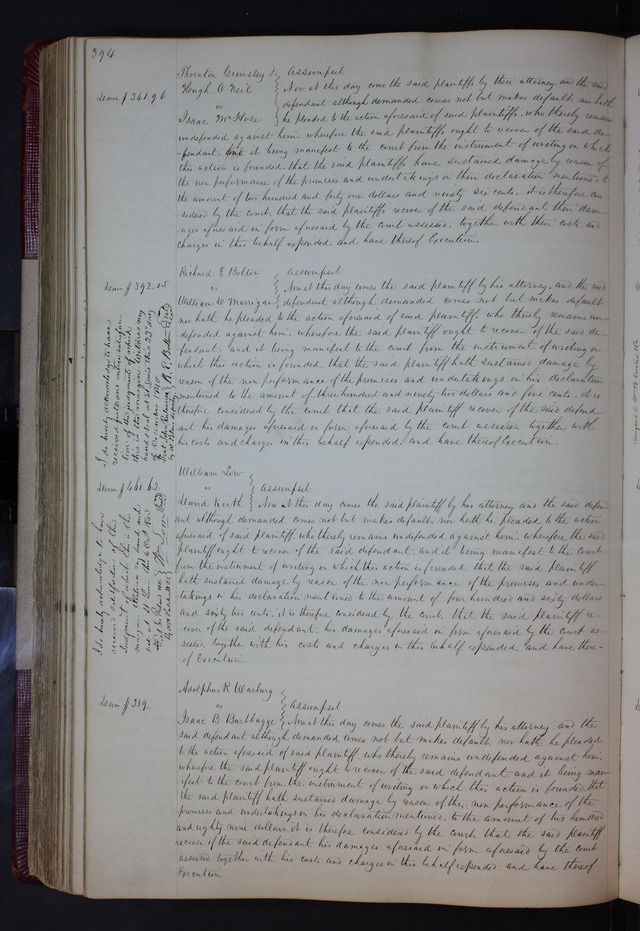 394
Thornton Grimsley & Assumpsit
Hough O'Neil Now at this day come the said plaintiffs by their attorney, and the said
Dam $ 241.96
vs defendant although demanded comes not but makes default, nor hath
Isaac he pleaded to the action aforesaid of said plaintiffs, who thereby remain
undefended against him wherefore the said plaintiffs ought to recover of the said de-
-fendant. And it being manifest to the court from the instrument of writing on which
this action is founded, that the said plaintiffs have sustained damage by reason of
the non performance of the promises and undertakings in their declaration mentioned to
the amount of two hundred and forty one dollars and ninety six cents. it is therefore con-
sidered by the court that the said plaintiffs recover of the said defendant their dam-
ages aforesaid in form aforesaid by the court assessed, together with their costs and
charges in this behalf expended, and have thereof Execution.
Richard E Bolton Assumpsit
Dam $ 392.05
vs Now at this day comes the said plaintiff by his attorney, and the said
William defendant although demanded comes not but makes default
nor hath he pleaded to the action aforesaid of said plaintiff who thereby remains un-
defended against him. wherefore the said plaintiff ought to recover of the said de-
fendant. and it being manifest to the court from the instrument of writing on
which this action is founded that the said plaintiff hath sustained damage by
reason of the non performance of the promises and undertakings in his declaration
mentioned to the amount of three hundred and ninety two dollars and five cents. it is
therefore considered by the court that the said plaintiff recover of the said defend
ant his damages aforesaid in form aforesaid by the court assessed together with
his costs and charges in this behalf expended, and have thereof Execution.
I do hereby acknowledge to have
received full and entire satisfac-
tion of this judgment of which
this is the margin. Witness my
hand & seal at St Louis this 22d day
of December 1840
William Low
Dam $ 460.62
vs Assumpsit
David Keith Now at this day comes the said plaintiff by his attorney and the said defend
ant although demanded comes not but makes default, nor hath he pleaded to the action
aforesaid of said plaintiff, who thereby remains undefended against him. wherefore the said
plaintiff ought to recover of the said defendant. and it being manifest to the court
from the instrument of writing on which this action is founded, that the said plaintiff
hath sustained damage by reason of the non performance of the promises and under-
takings in his declaration mentioned to the amount of four hundred and sixty dollars
and sixty two cents. it is therefore considered by the court, that the said plaintiff re-
cover of the said defendant, his damages aforesaid in form aforesaid by the court as-
sessed, together with his costs and charges in this behalf expended and have there-
of Execution.
I do hereby acknowledge to have
received satisfaction of this
Judgment of which this is the
margin. Witness my hand and
seal at St. Louis this 6 Oct. 1840
Adolphus R Warburg
Dam $ 289.
vs Assumpsit
Isaac B Burbbagge Now at this day comes the said plaintiff by his attorney. and the
said defendant although demanded comes not but makes default nor hath he pleaded
to the action aforesaid of said plaintiff, who thereby remains undefended against him.
wherefore the said plaintiff ought to recover of the said defendant and it being man-
ifest to the court from the instrument of writing on which this action is founded, that
the said plaintiff hath sustained damage by reason of the non performance of the
promises and undertakings in his declaration mentioned, to the amount of two hundred
and eighty nine dollars. it is therefore considered by the court, that the said plaintiff
recover of the said defendant his damages aforesaid in form aforesaid by the court
assessed together with his costs and charges in this behalf expended and have thereof
Execution